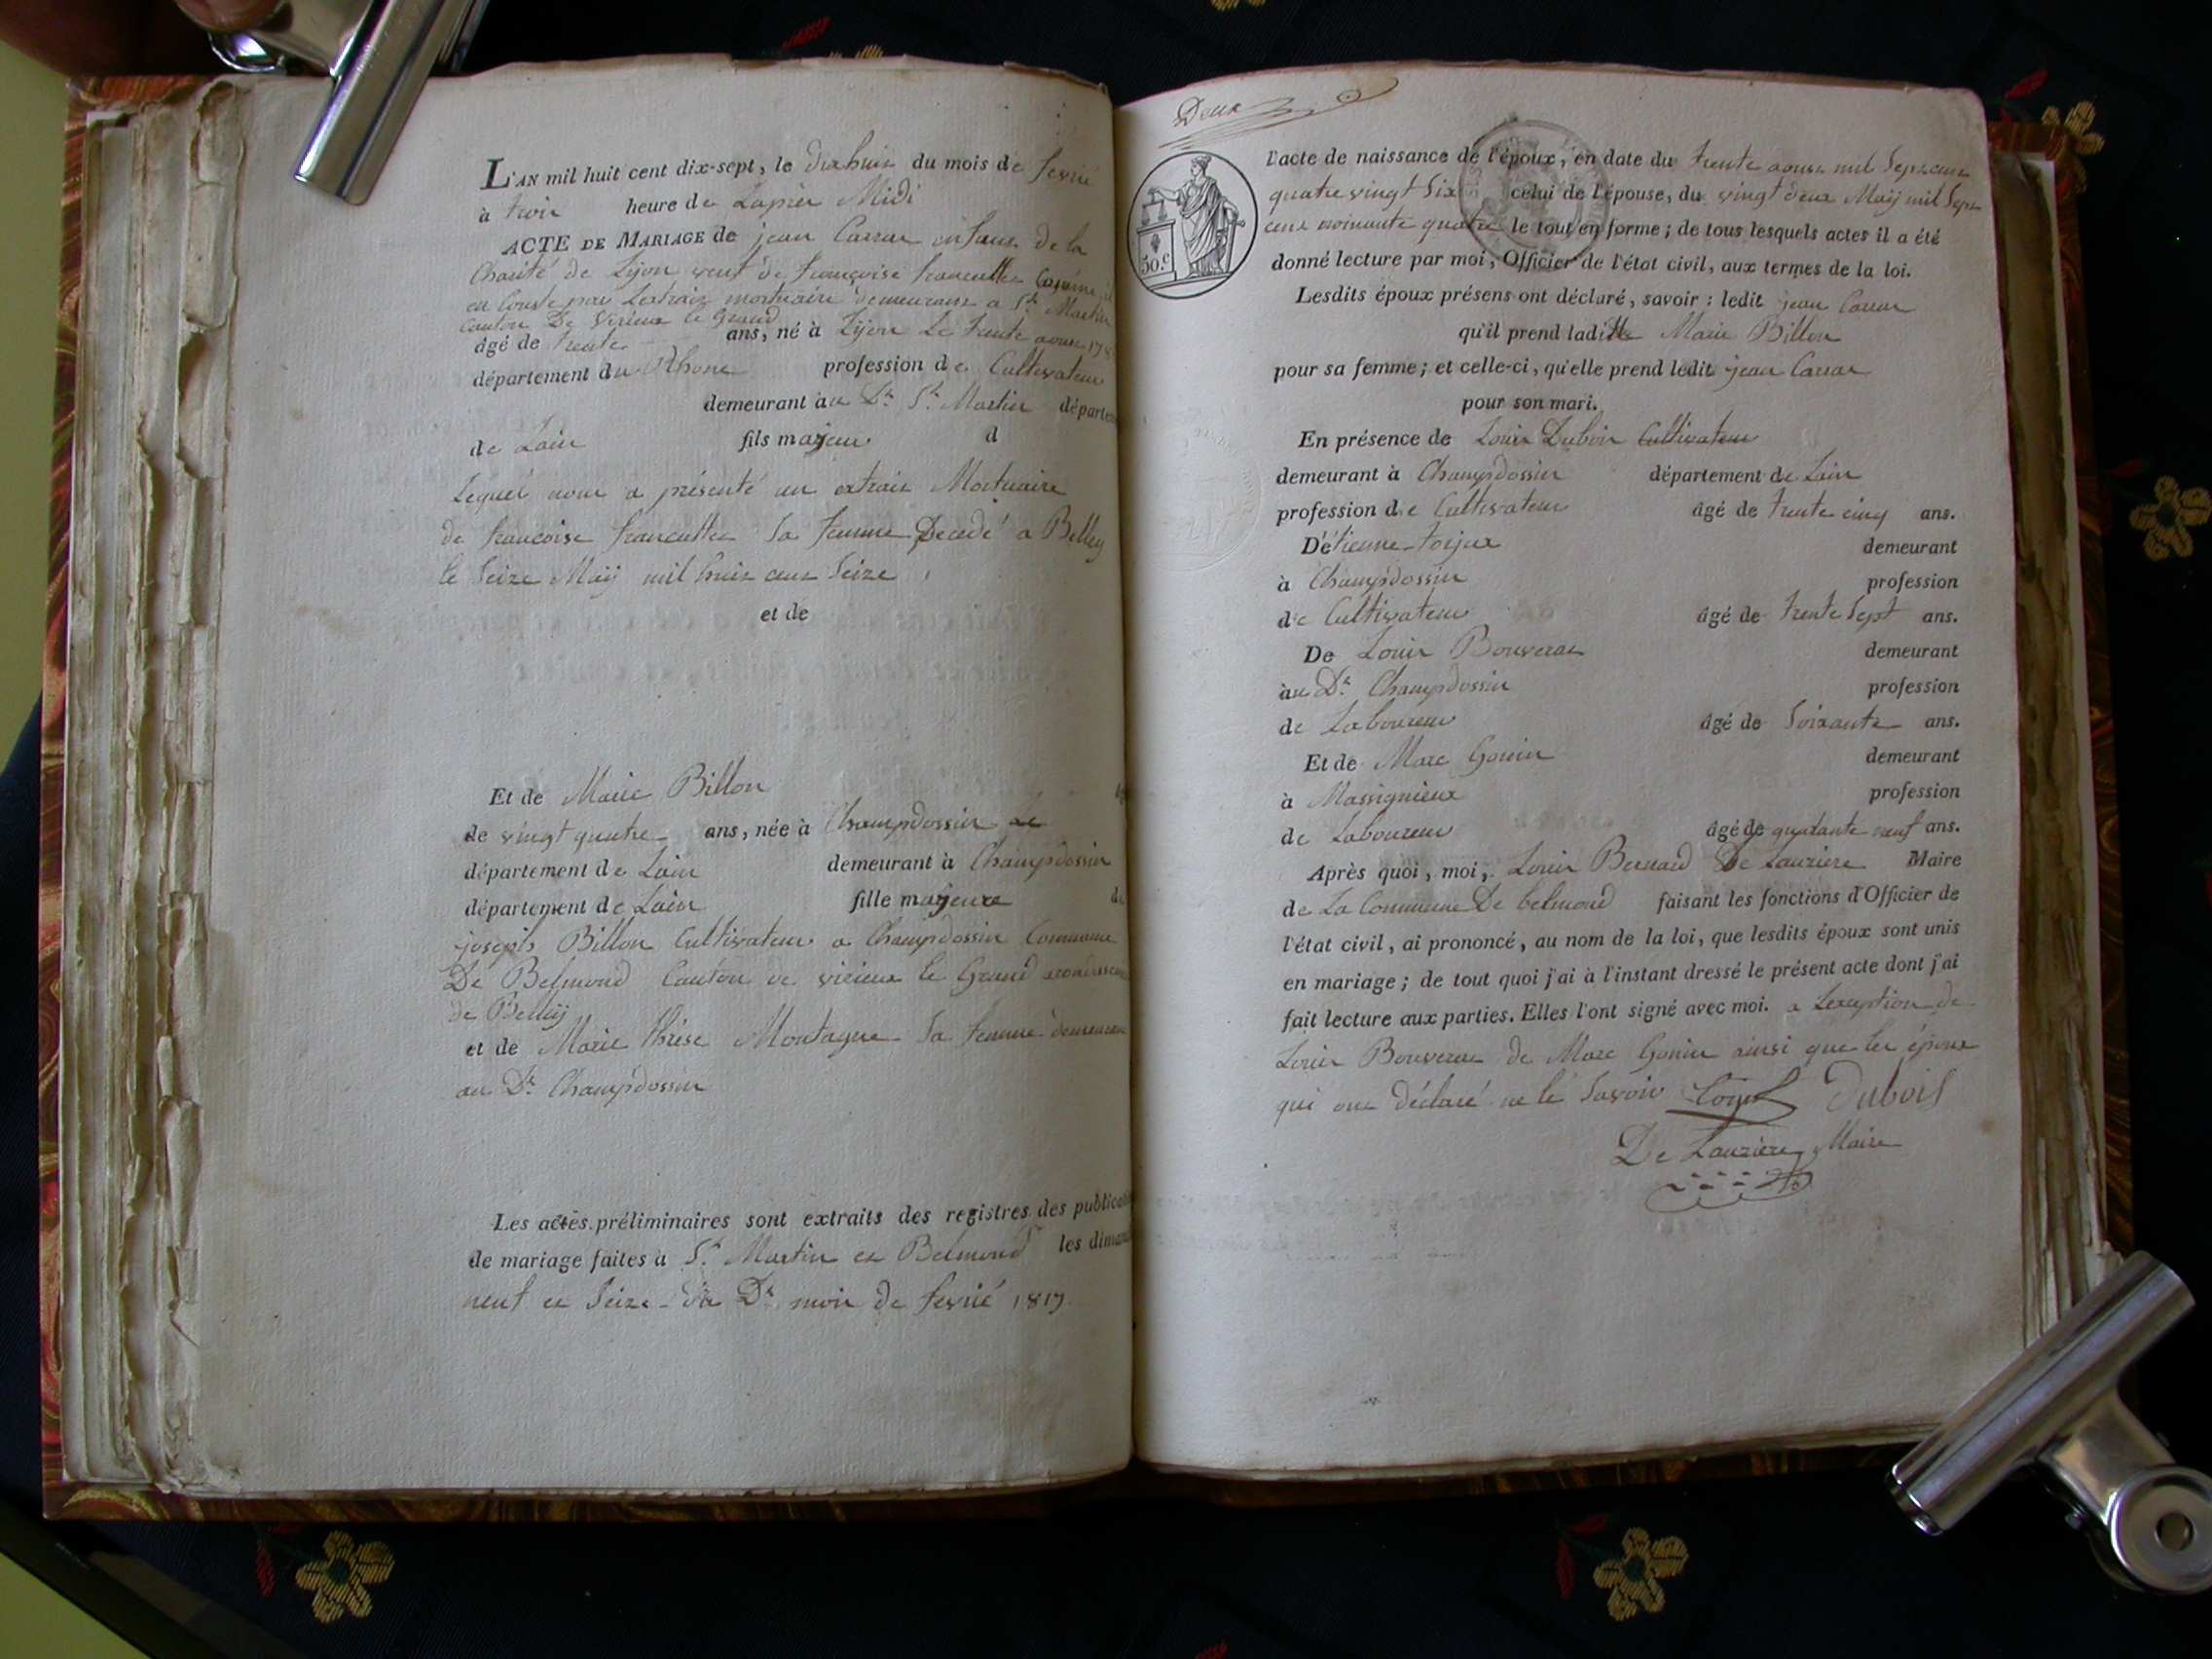 L'AN mil huit cent dix-sept, le dixhuit du mois de fevrié
à trois heure de Lapres Midi
ACTE DE MARIAGE de jean Carrar enfant de la
Charité de Lijon veuf de françoise
en Conste par Lextrait mortuaire demeurant a St. Martin
Canton De Virieux le Grand
âgé de trente ans, né à Lijon Le trente aoust 178
département du Rhone profession de Cultivateur
demeurant au Dt. St. Martin départe
de Lain fils majeur d
Lequel nous a présenté un extrait Mortuaire
de francoise sa femme Decedé a Belley
le Seize Maij mil huit cent Seize
et de
Et de Marie Billon
de vingt quatre ans, née à Champdossin
département de Lain demeurant à Champdossin
département de Lain fille majeure de
joseph Billon Cultivateur a Champdossin Commune
De Belmond Canton de virieux le Grand
de Bellij
et de Marie thrise Montagne Sa femme demeurant
au Dt. Champdossin
Les actes préliminaires sont extraits des registres des publicat
de mariage faites à St. Martin et Belmond les diman
neuf et Seize du Dt. mois de fevrié 1817
Deux
50.c
l'acte de naissance de l'époux, en date du trente aoust mil Sept cent
quatre vingt Six celui de l'épouse, du vingt deux Maij mil Sept
cent noinante quatre le tout en forme ; de tous lesquels actes il a été
donné lecture par moi, Officier de l'état civil, aux termes de la loi.
Lesdits époux présens ont déclaré, savoir : ledit jean Carrar
qu'il prend laditte Marie Billon
pour sa femme ; et celle-ci, qu'elle prend ledit jean Carrar
pour son mari.
En présence de Louis Dubois Cultivateur
demeurant à Champdossin département de Lain
profession de Cultivateur âgé de trente cinq ans.
D'étienne torjux demeurant
à Champdossin profession
de Cultivateur âgé de trente Sept ans.
De Louis Bouverat demeurant
au Dt. Champdossin profession
de Laboureur âgé de Soixante ans.
Et de Marc Gonin demeurant
à Massignieux profession
de Laboureur âgé de quatante neuf ans.
Après quoi, moi, Louis Bernard De Lauziere Maire
de La Commune De belmond faisant les fonctions d'Officier de
l'état civil, ai prononcé, au nom de la loi, que lesdits époux sont unis
en mariage ; de tout quoi j'ai à l'instant dressé le présent acte dont j'ai
fait lecture aux parties. Elles l'ont signé avec moi. a Lexception de
Louis Bouverat de Marc Gonin ainsi que les époux
qui ont déclaré ne le Savoir Dubois
De Lauziere Maire